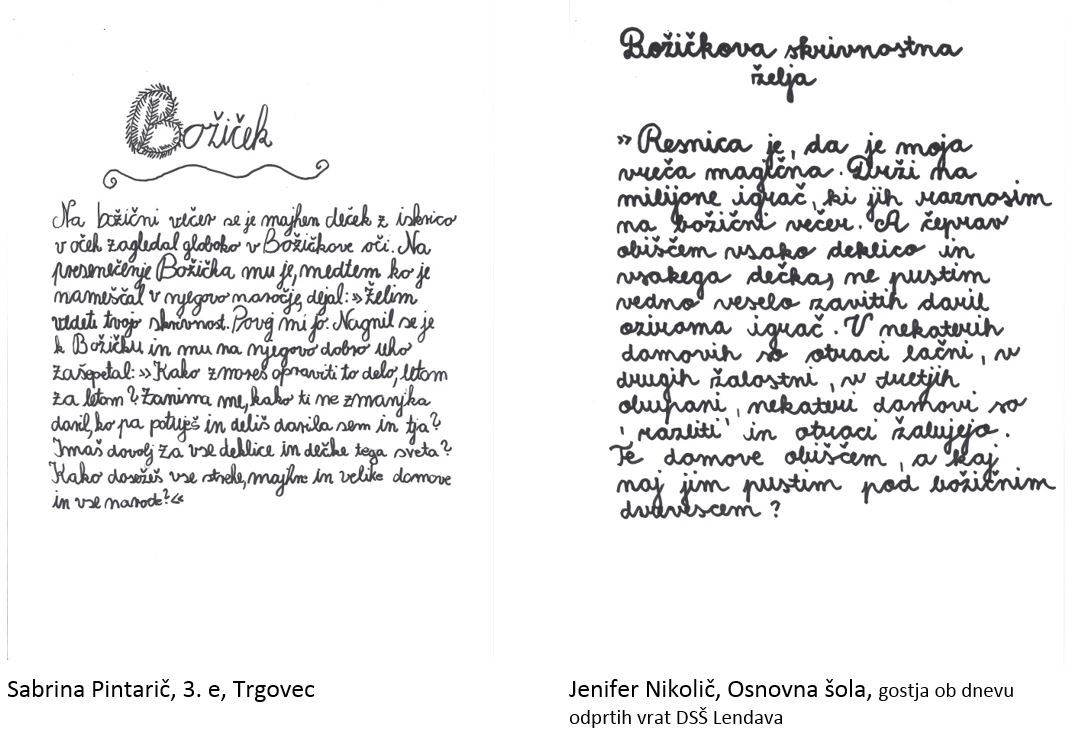 Božiček
Na božični večer se je majhen deček z iskrico
v očeh zagledal globoko v Božičkove oči. Na
presenečenje Božička mu je, medtem ko je
nameščal v njegovo naročje, dejal: »Želim
videti tvojo skrivnost. Povej mi jo. Nagnil se je
k Božičku in mu na njegovo dobro uho
zašepetal: »Kako zmoreš opraviti to delo, letom
za letom? Zanima me, kako ti ne zmanjka
daril, ko pa potuješ in deliš darila sem in tja?
Imaš dovolj za vse deklice in dečke tega sveta?
Kako dosežeš vse strehe, majhne in velike domove
in vse narode?«
Sabrina Pintarič, 3. e, Trgovec
Božičkova skrivnostna
želja
»Resnica je, da je moja
vreča magična. Drži na
milijone igrač, ki jih raznosim
na božični večer. A čeprav
obiščem vsako deklico in
vsakega dečka, ne pustim
vedno veselo zavitih daril
oziroma igrač. V nekaterih
domovih so otroci lačni, v
drugih žalostni, v tretjih
obupani, nekateri domovi so
'razbiti' in otroci žalujejo.
Te domove obiščem, a kaj
naj jim pustim pod božičnim
drevescem?
Jenifer Nikolič, Osnovna šola, gostja ob dnevu
odprtih vrat DSŠ Lendava